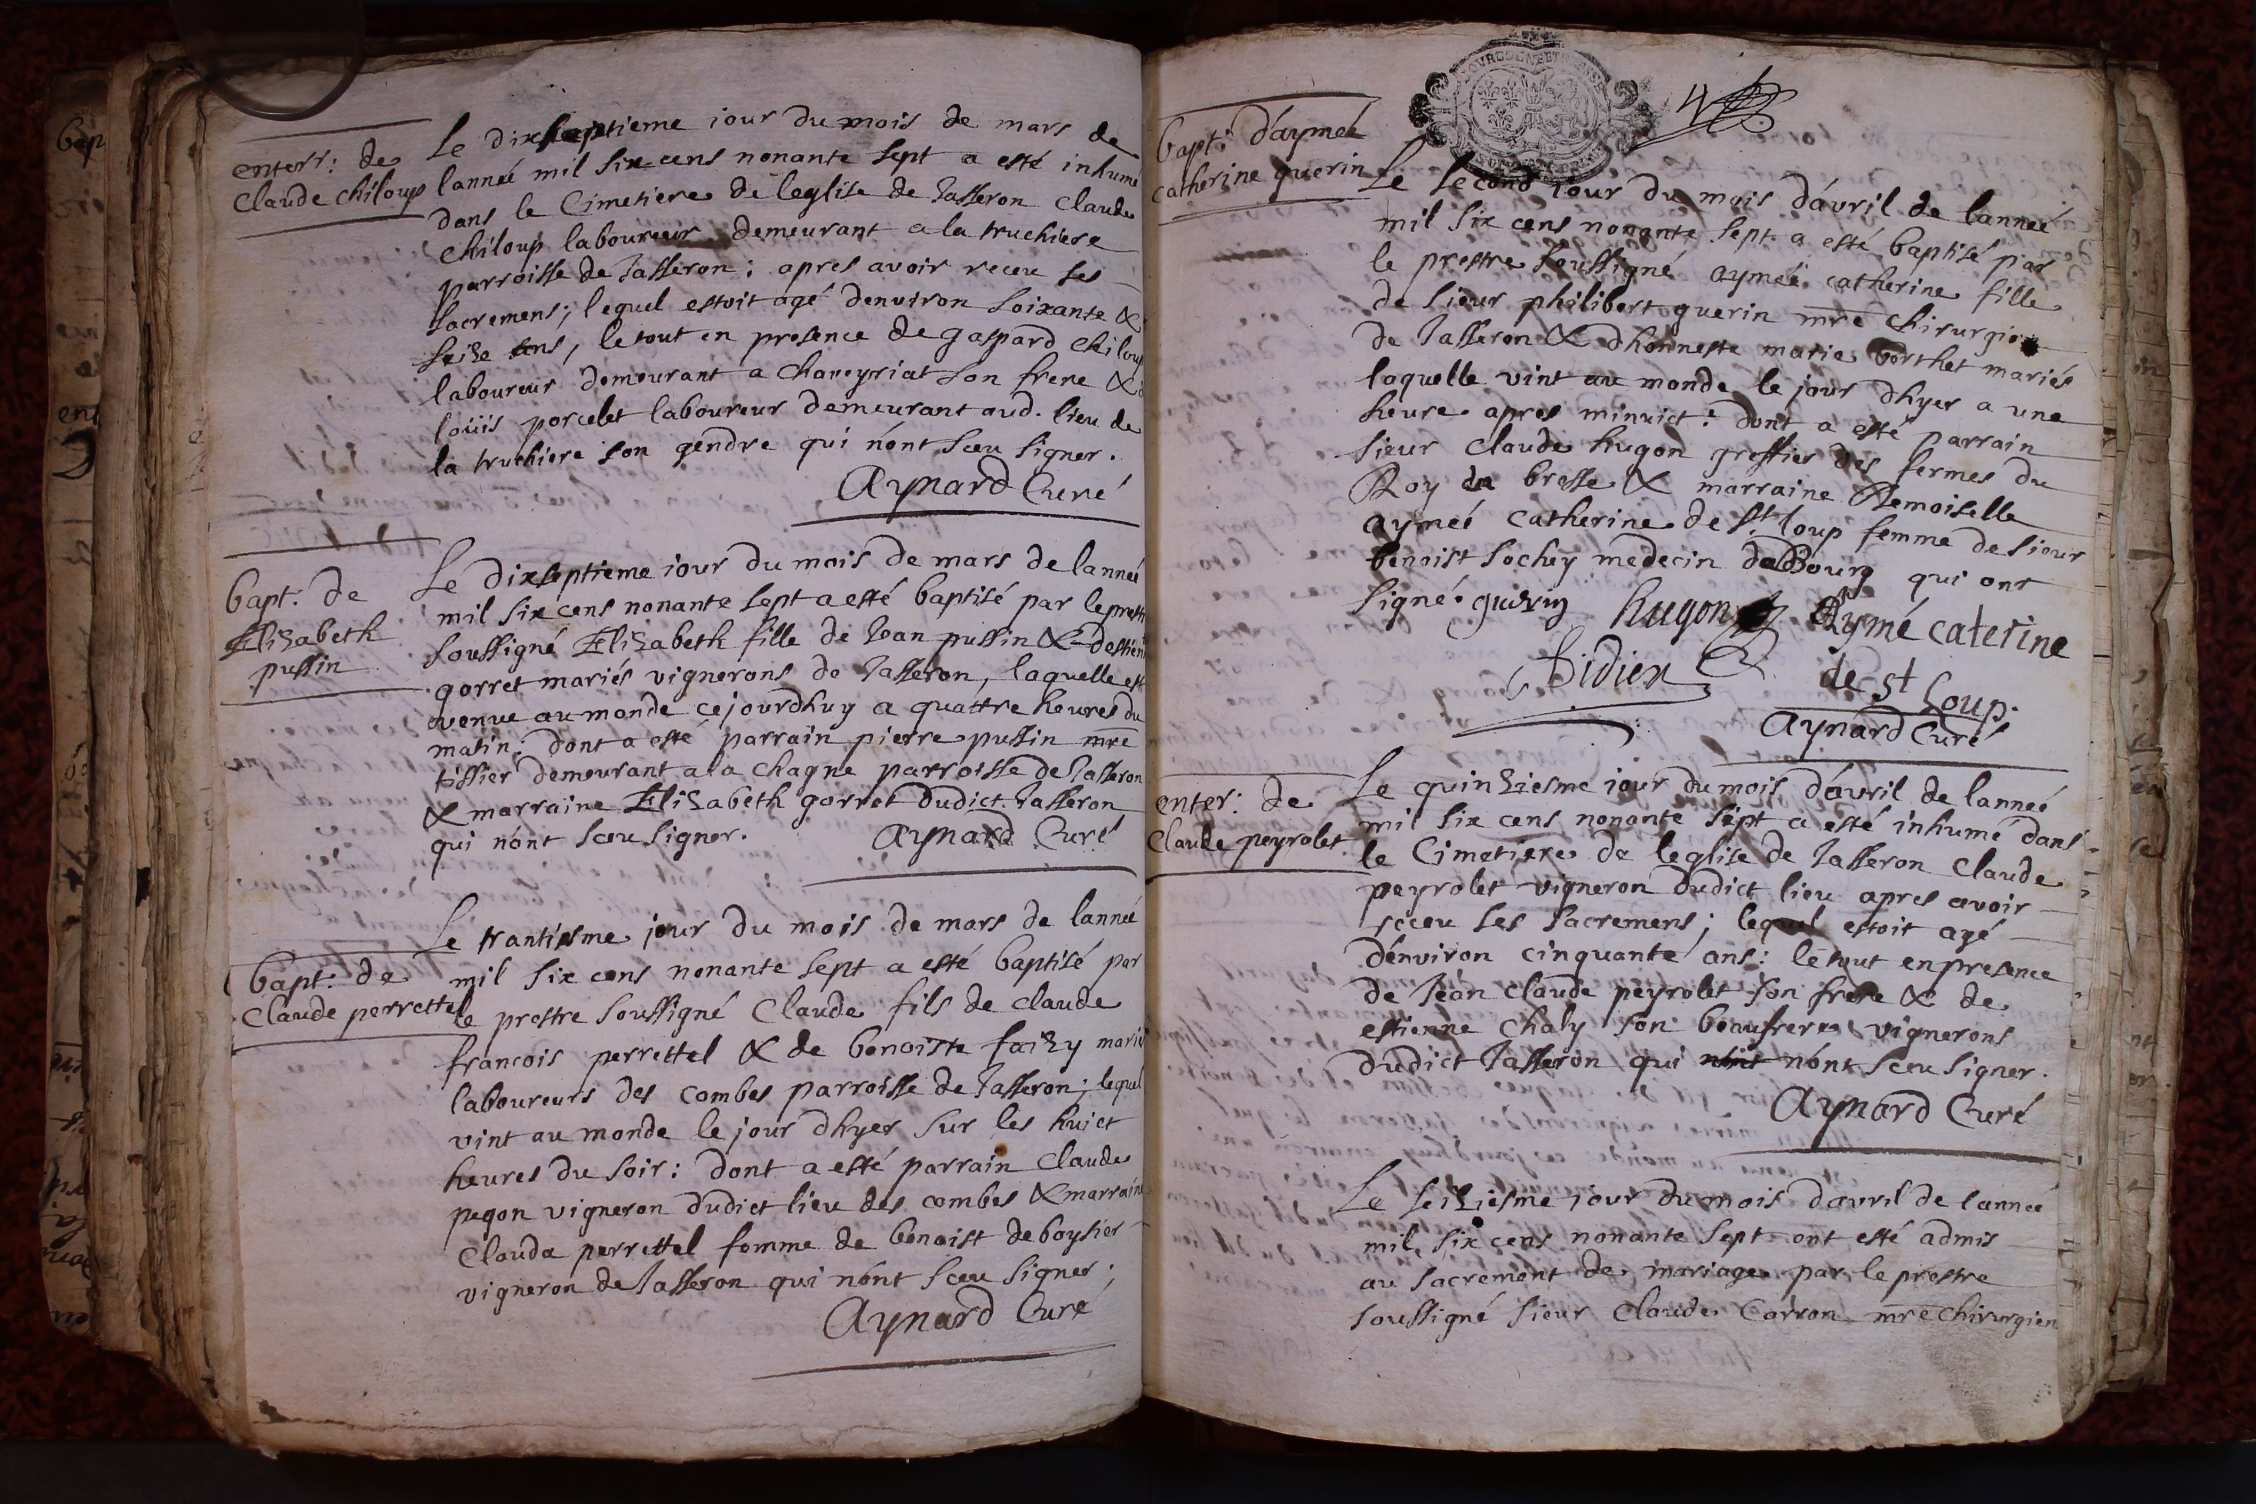 enterr: de
Claude chiloup
Le dixseptieme iour du mois de mars de
lanneé mil six cens nonante sept a esté inhumé
dans le Cimetiere de leglise de Jasseron Claude
chiloup laboureur demeurant a la truchiere
parroisse de Jasseron; apres avoir receu ses
sacremens; lequel estoit agé denviron soixante &
seize ans, le tout en presence de gaspard chiloup
laboureur demeurant a chaveyriat son frere &
loüis porcelet laboureur demeurant aud. lieu de
la truchiere son gendre qui n'ont sceu signer.
Aynard Curé
bapt: de
Elizabeth
pussin
Le dixseptieme iour du mois de mars de lanneé
mil six cens nonante sept a esté baptisé par le prestre
soussigné Elizabeth fille de Jean pussin & destien
gorret mariés vignerons de Jasseron, laquelle est
venue au monde cejourdhuy a quattre heures du
matin: dont a esté parrain pierre pussin mre
tissier demeurant a la chagne parroisse de Jasseron
& marraine Elizabeth gorret dudict Jasseron
qui n'ont sceu signer.
Aynard Curé
bapt: de
Claude perrettel
Le trantiesme jour du mois de mars de lanneé
mil six cens nonante sept a esté baptisé par
le prestre soussigné Claude fils de claude
francois perrettel & de benoiste faizy mariés
laboureurs des combes parroisse de Jasseron; lequel
vint au monde le jour dhyer sur les huict
heures du soir: dont a esté parrain Claude
pegon vigneron dudict lieu des combes & marraine
Clauda perrettel femme de benoist deboysier
vigneron de Jasseron qui n'ont sceu signer;
Aynard Curé
bapt: d'aymeé
catherine guerin
Le second iour du mois d'avril de lanneé
mil six cens nonante sept a esté baptisé par
le prestre soussigné aymeé catherine fille
de sieur philibert guerin mre chirurgien
de Jasseron & dhonneste marie borthet mariés
laquelle vint au monde le jour dhyer a une
heure apres minuict: dont a esté parrain
sieur Claude hugon greffier des fermes du
Roy en bresse & marraine Demoiselle
aymeé catherine de St loup femme de sieur
benoist sochey medecin de Bourg qui ont
signé. guerin hugon Aymé caterine
Didier de st Loup.
Aynard Curé
enter: de
Claude peyrolet
Le quinziesme iour du mois d'avril de lanneé
mil six cens nonante sept a esté inhumé dans
le Cimetiere de leglise de Jasseron Claude
peyrolet vigneron dudict lieu apres avoir
receu ses sacremens; lequel estoit agé
d'environ cinquante ans: le tout en presence
de Jean Claude peyrolet son frere & de
estienne chaly son beaufrere vignerons
dudict Jasseron qui n'ont n'ont sceu signer.
Aynard Curé
Le seiziesme iour du mois davril de lanneé
mil six cens nonante sept ont esté admis
au sacrement de mariage par le prestre
soussigné sieur Claude Carron mre chirurgien